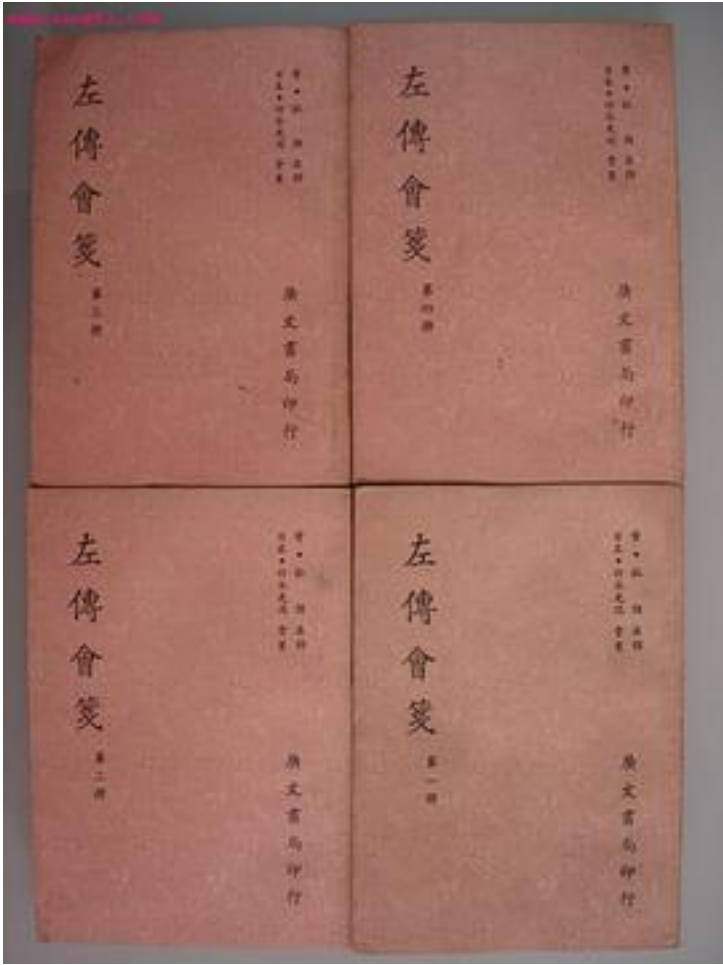 晉・杜預
日本・竹添光鴻 會箋
左傳會箋 第三冊
廣文書局印行
晉・杜預
日本・竹添光鴻 會箋
左傳會箋 第四冊
廣文書局印行
晉・杜預
日本・竹添光鴻 會箋
左傳會箋 第二冊
廣文書局印行
晉・杜預
日本・竹添光鴻 會箋
左傳會箋 第一冊
廣文書局印行